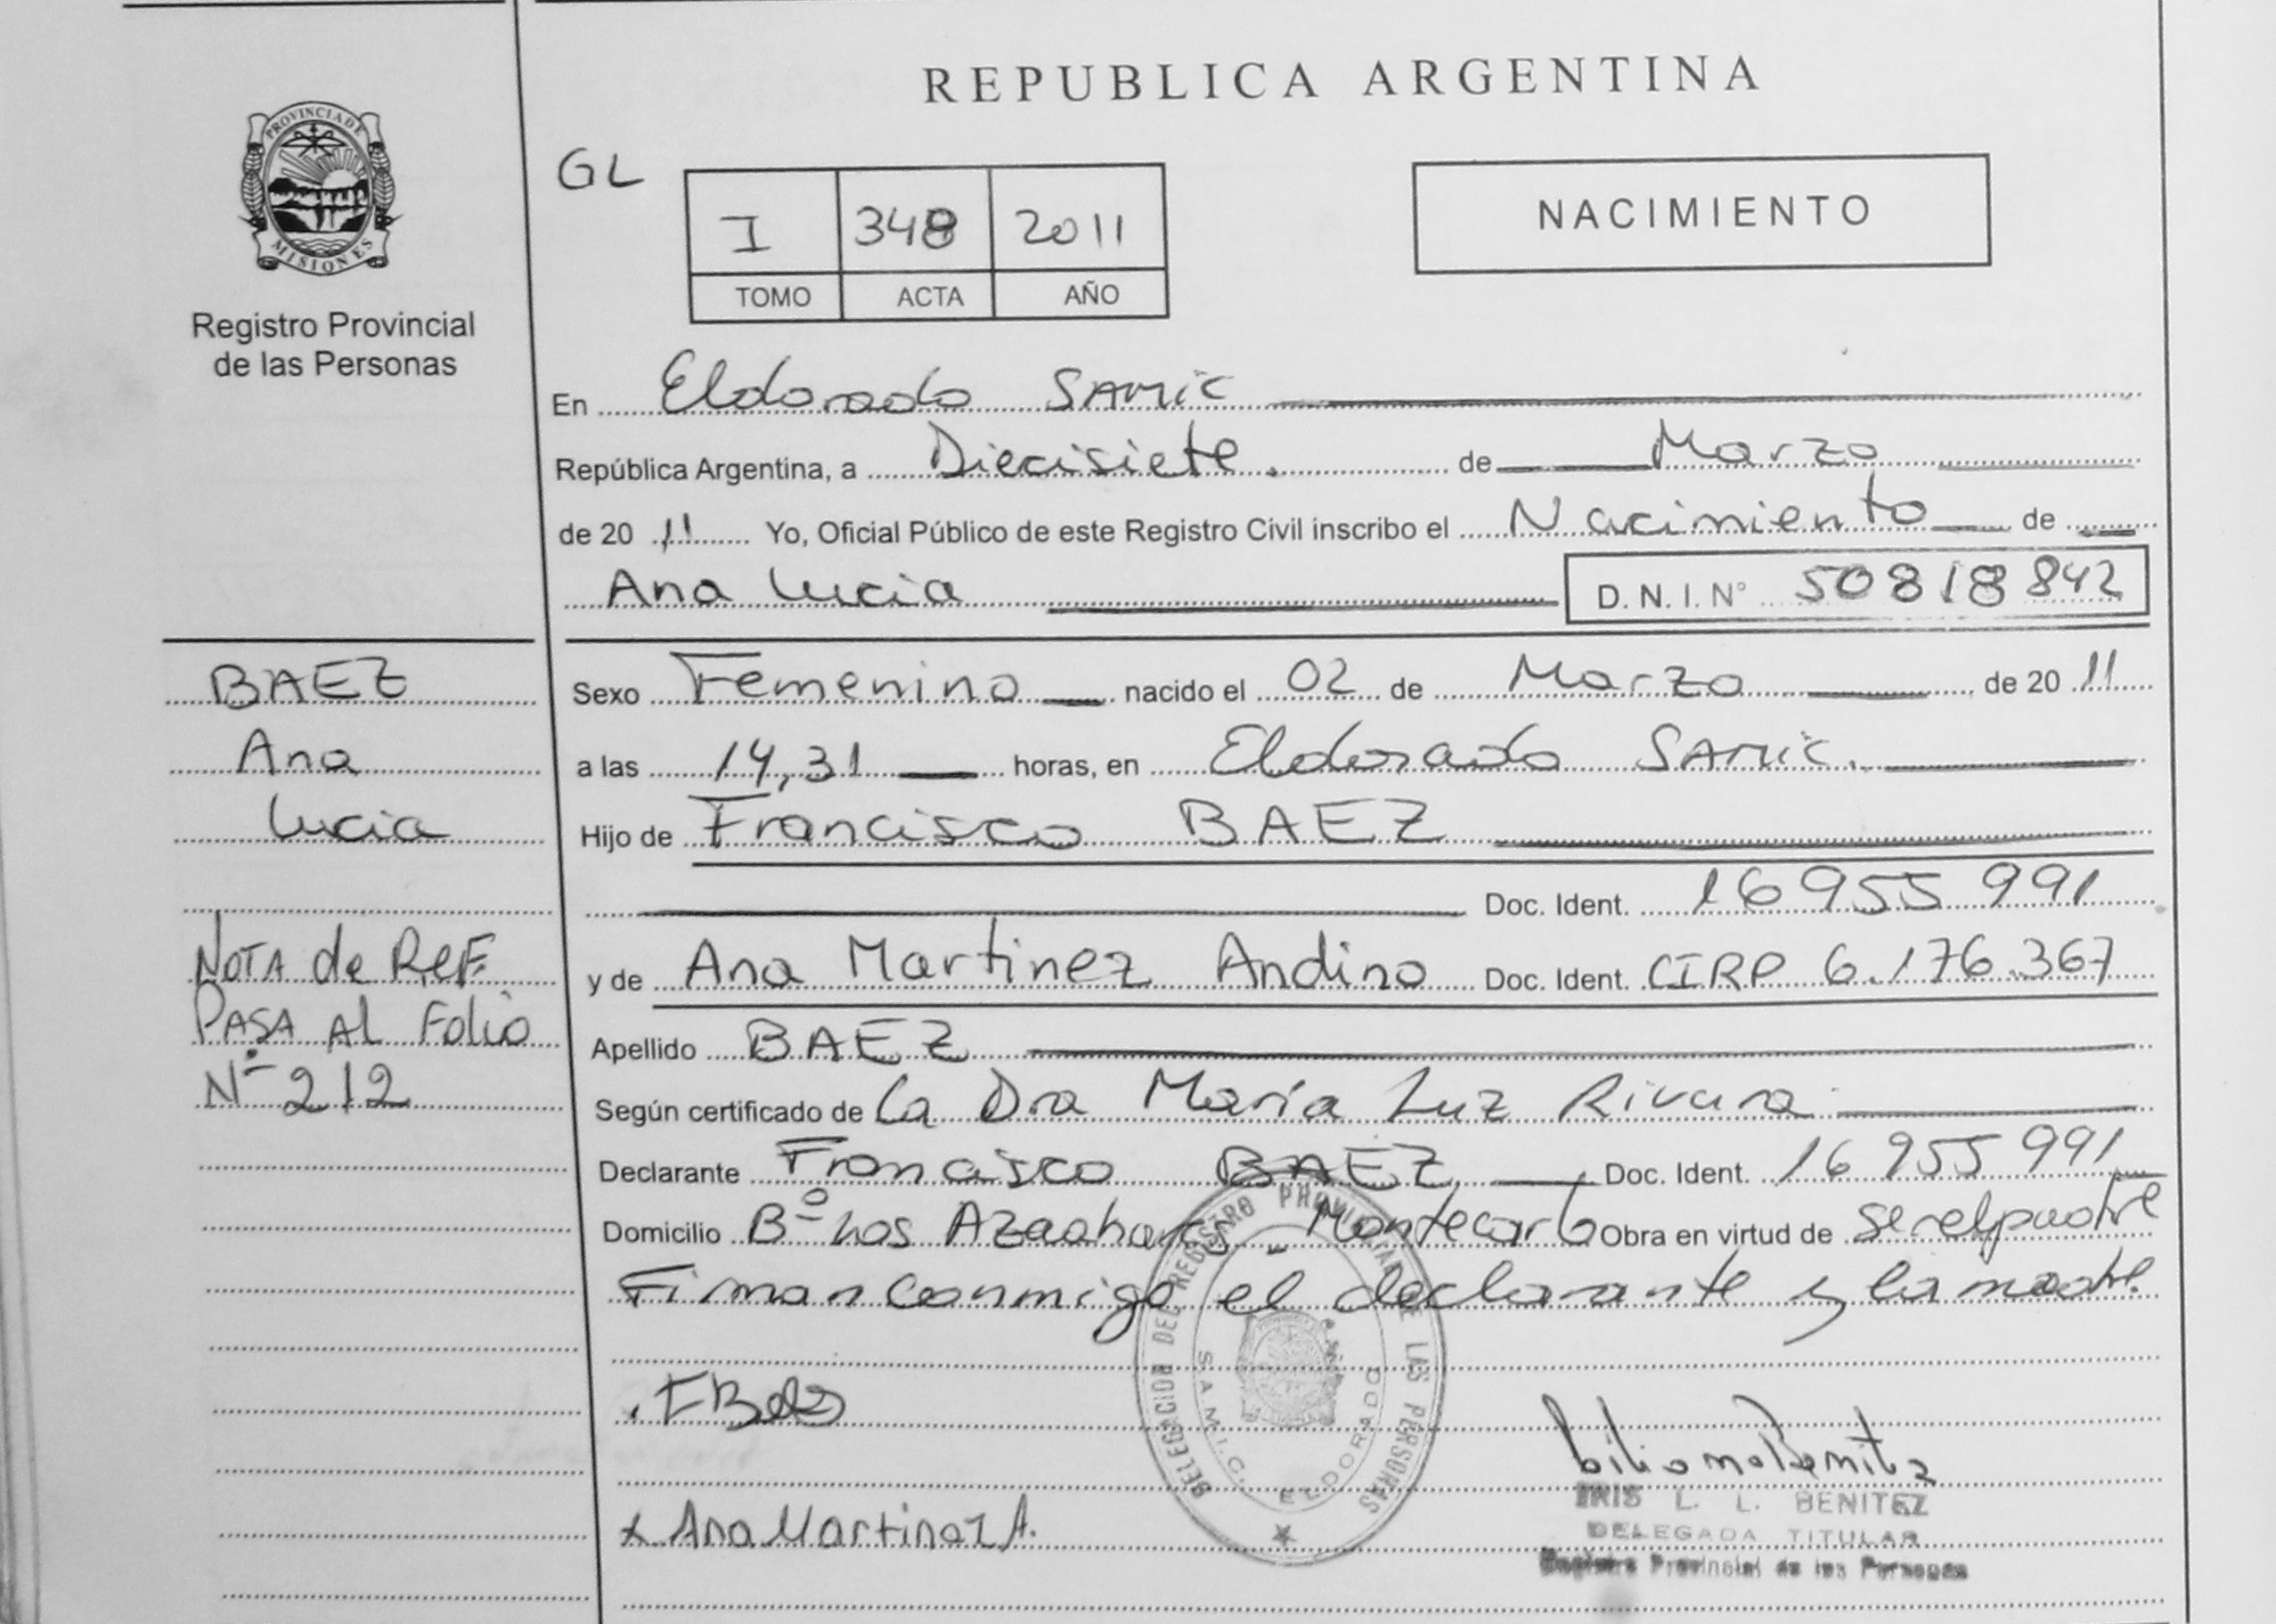 REPUBLICA ARGENTINA
PROVINCIA DE
MISIONES
Registro Provincial
de las Personas
GL
I 348 2011
TOMO ACTA AÑO
NACIMIENTO
En Eldorado SAMIC
República Argentina, a Diecisiete. de Marzo
de 20 11 Yo, Oficial Público de este Registro Civil inscribo el Nacimiento de
Ana Lucia D. N. I. N° 50818842
BAEZ
Ana
Lucia
NOTA de REF.
PASA Al Folio
Nº 212
Sexo Femenino nacido el 02 de Marzo de 20 11
a las 14,31 horas, en Eldorado SAMIC.
Hijo de Francisco BAEZ
Doc. Ident. 16955991
y de Ana Martinez Andino Doc. Ident. CIRP 6.176.367
Apellido BAEZ
Según certificado de La Dra María Luz Rivara
Declarante Francisco BAEZ Doc. Ident. 16955991
Domicilio Bº Los Azahares - Montecarlo Obra en virtud de ser el padre
Firman conmigo el declarante y la madre.
DELEGACION DEL REGISTRO PROVINCIAL DE LAS PERSONAS
S.A.M.I.C. ELDORADO
F Baez
x Ana Martinez A.
IRIS L. L. BENITEZ
DELEGADA TITULAR
Registro Provincial de las Personas